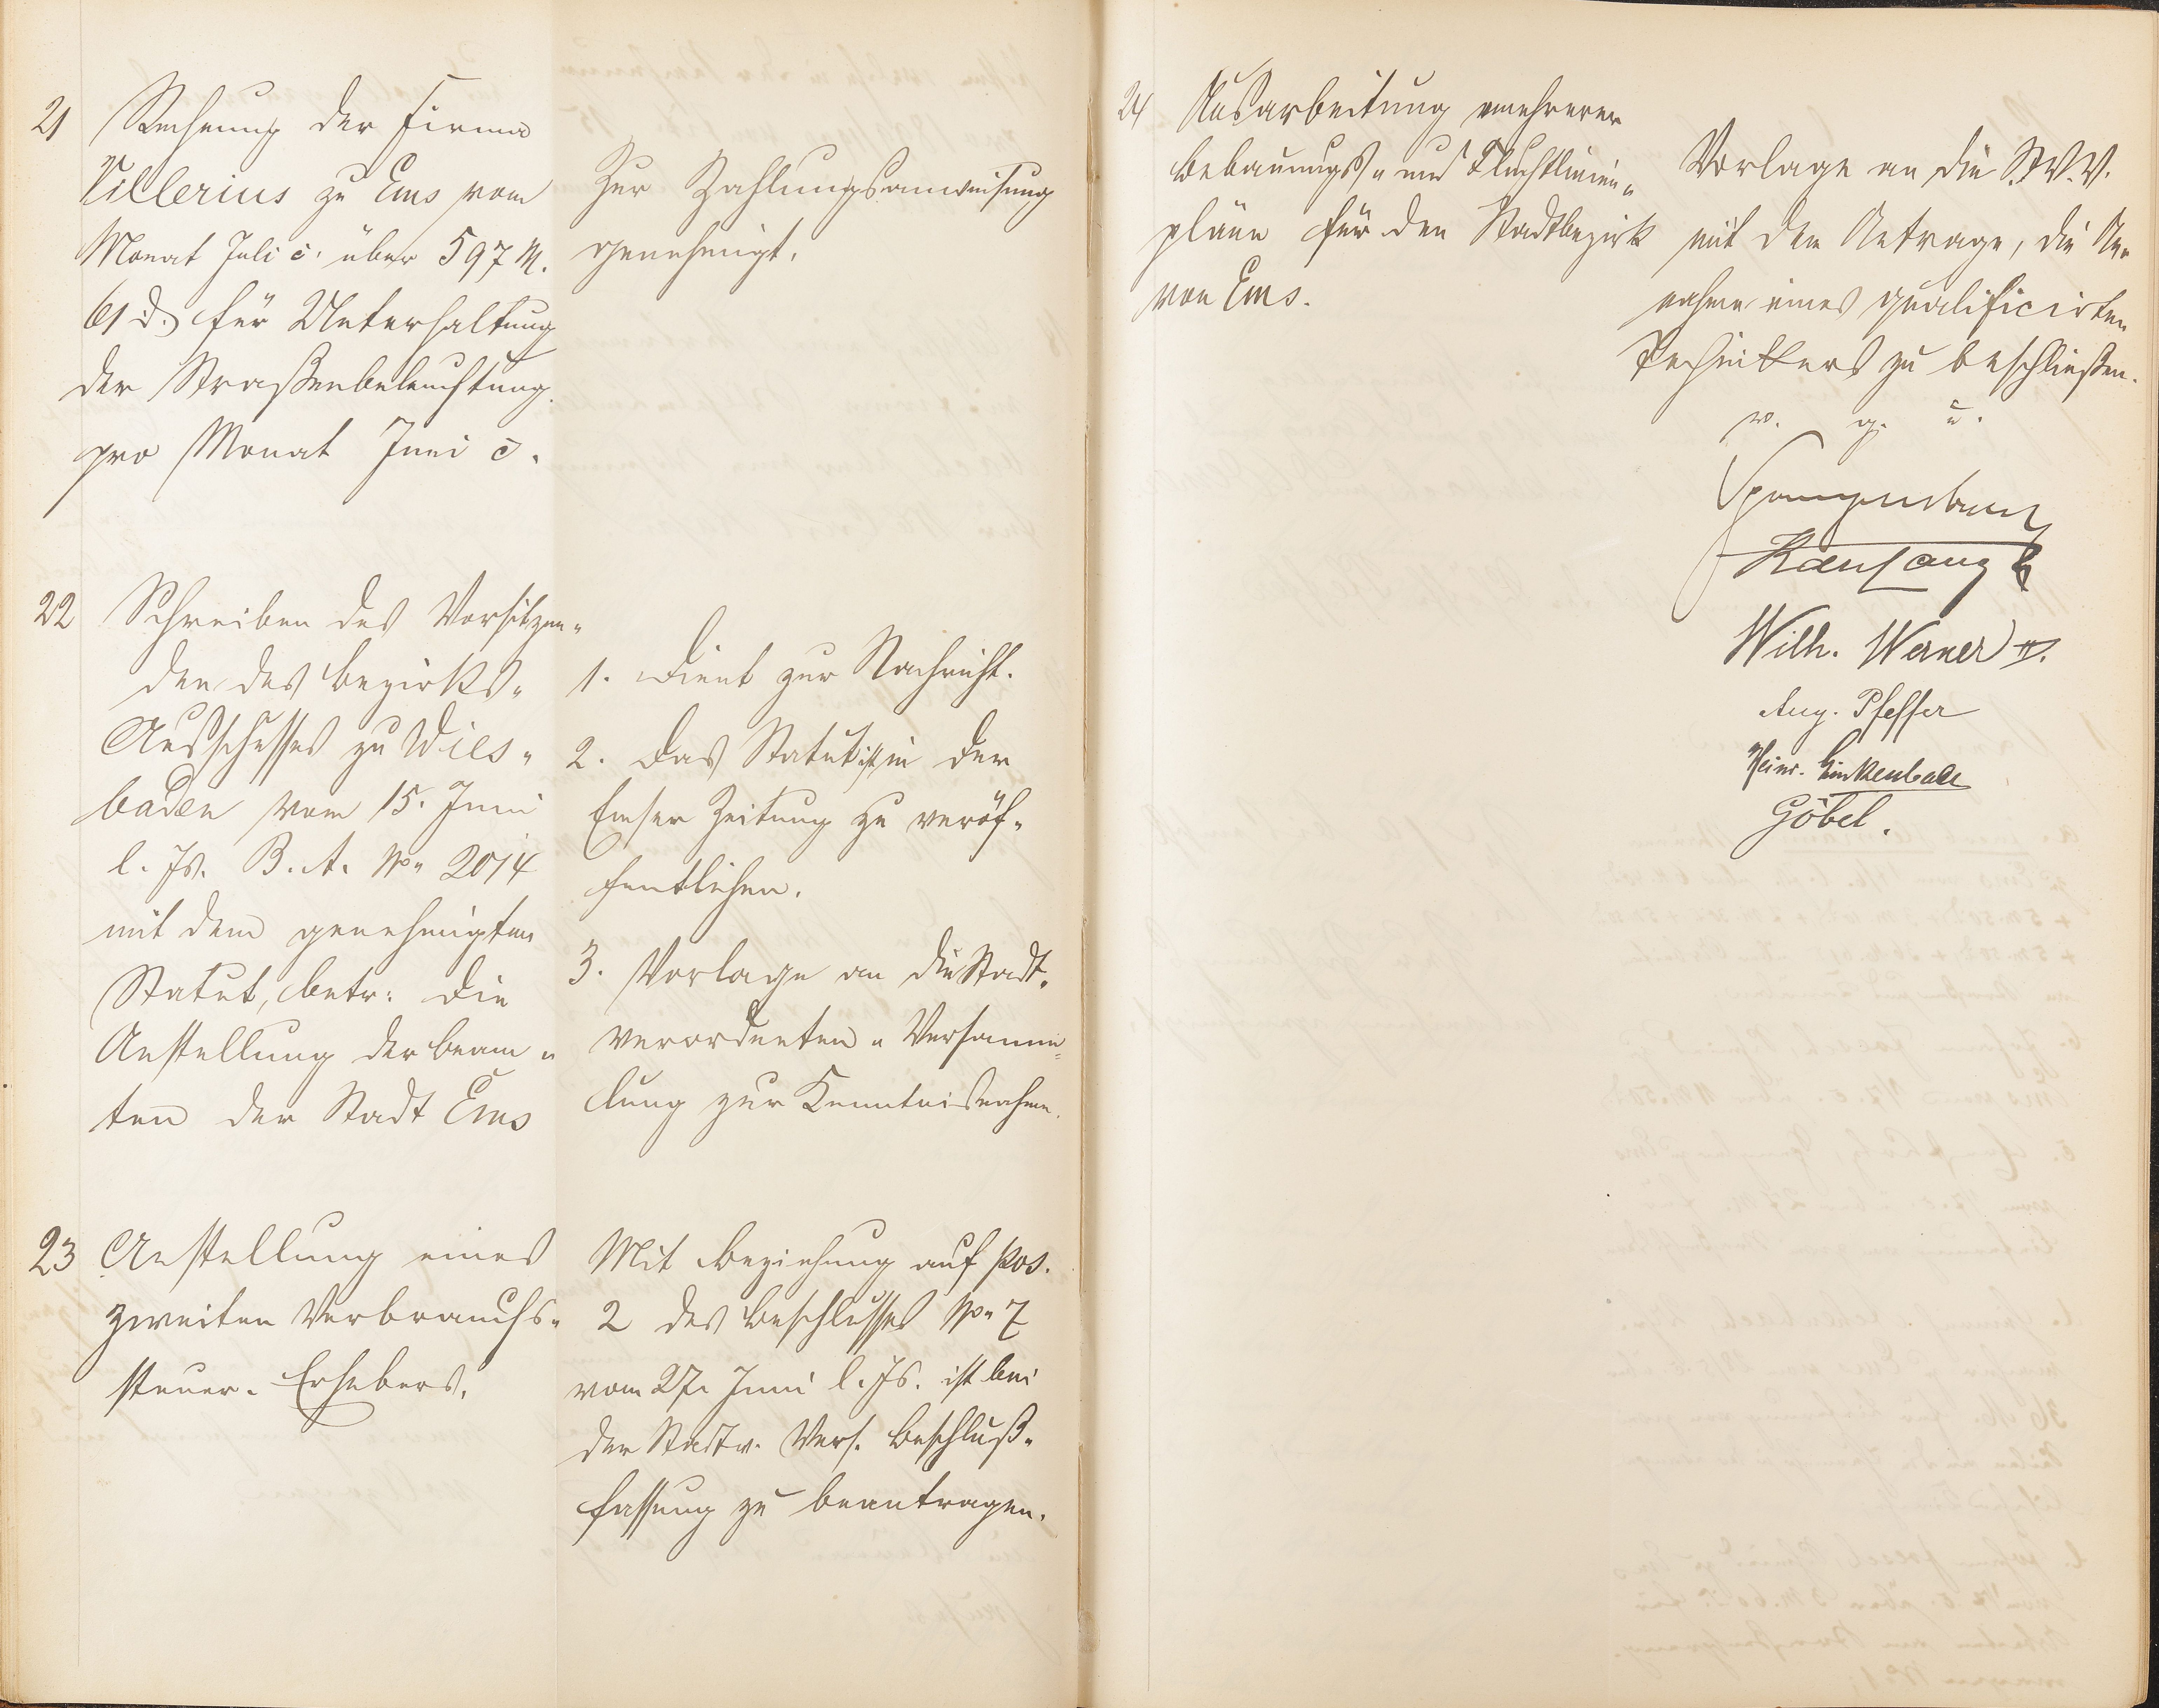 21 Rechnung der Firma
Villerius zu Ems vom
Monat Juli c. über 597 M.
61 d. für Unterhaltung
der Straßenbeleuchtung
pro Monat Juni c.
Zur Zahlungsanweisung
genehmigt.
22 Schreiben des Vorsitzen„
den des Bezirks„
Ausschusses zu Wies„
baden vom 15. Juni
l. Js. B. A. No 2014
mit dem genehmigten
Statut, betr. die
Anstellung der Beam„
ten der Stadt Ems
1. Dient zur Nachricht.
2. Das Statut ist in der
Emser Zeitung zu veröf„
fentlichen.
3. Vorlage an die Stadt„
verordneten„Versamm„
lung zur Kenntnisnahme.
23 Anstellung eines
zweiten Verbrauchs„
steuer-Erhebers.
Mit Beziehung auf Pos.
2 des Beschlusses No 7
vom 27. Juni l. Js. ist bei
der Stadtv. Vers. Beschluß„
fassung zu beantragen.
24 Ausarbeitung mehrerer
Bebauungs„ und Fluchtlinien„
pläne für den Stadtbezirk
von Ems.
Vorlage an die St.V.V.
mit dem Antrage, die An„
nahme eines qualificirten
Technikers zu beschließen.
v. g. u.
Spangenberg
Wilh. Werner II.
Aug. Pfeffer
Heinr. Linkenbach
Göbel.